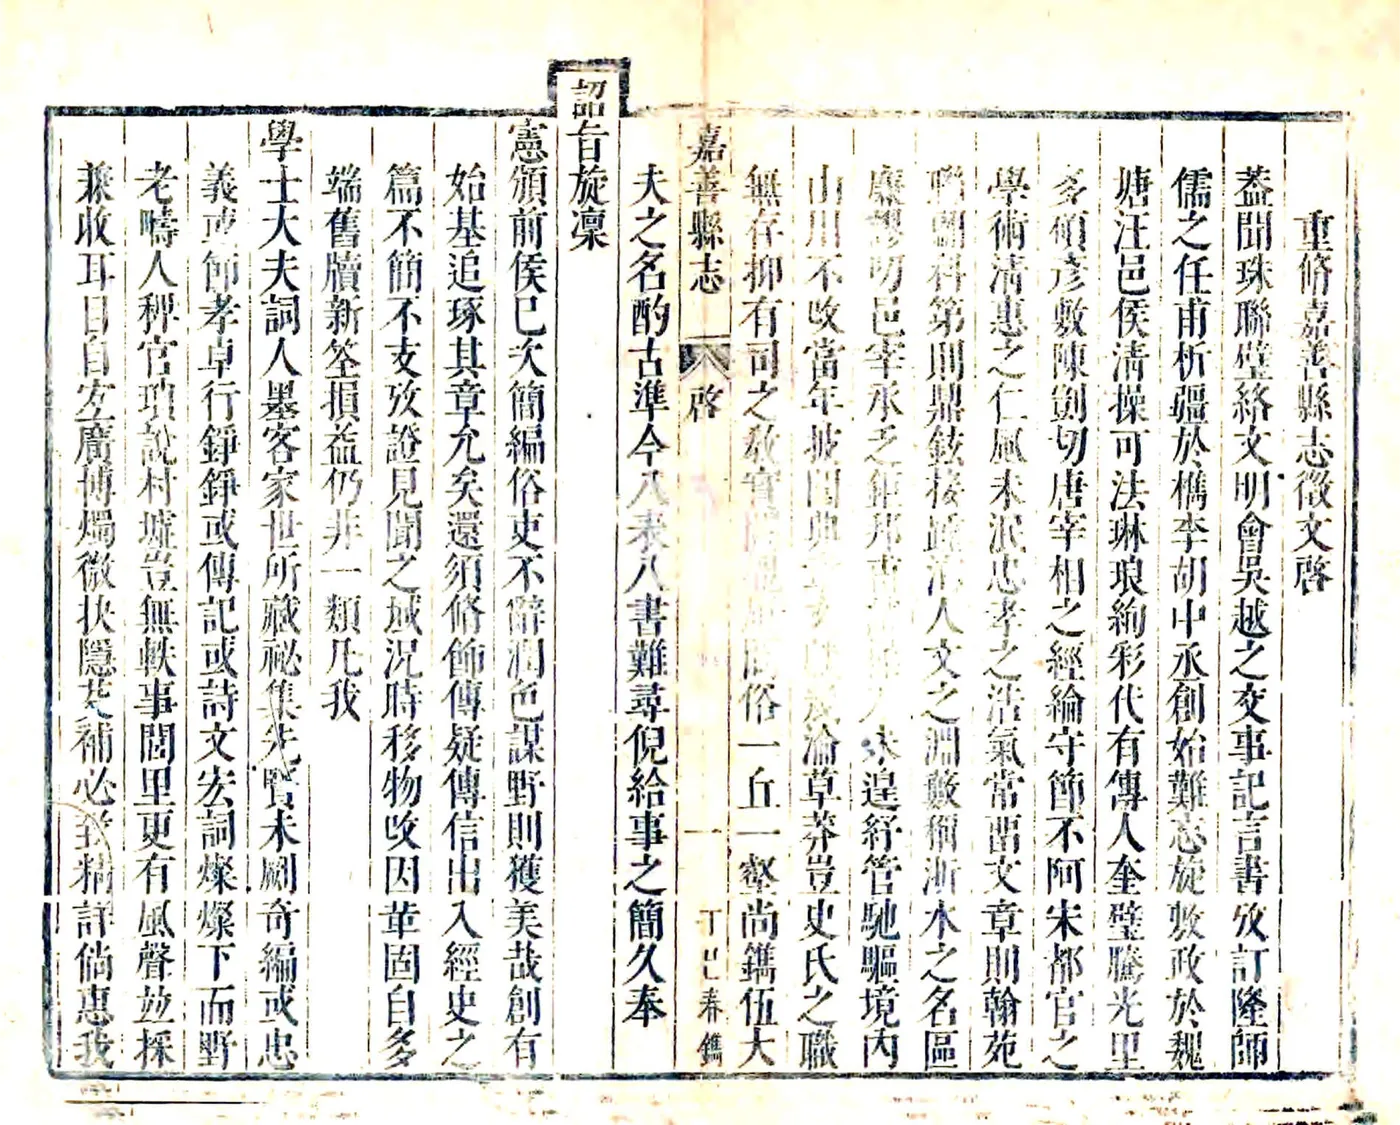 重脩嘉善縣志徵文啓
蓋聞珠聯璧絡文明會吳越之交事記言書攷訂隆師
儒之任甫析疆於檇李胡中丞創始難志旋敷政於魏
塘汪邑侯清操可法琳琅絢彩代有傳人奎璧騰光里
多碩彥敷陳剴切唐宰相之經綸守節不阿宋都官之
學術清惠之仁風未泯忠孝之浩氣常留文章則翰苑
聯翩科第則鼎鉉接踵洵人文之淵藪稱浙水之名區
廉謬叨邑宰承乏鉅邦未遑紓管馳驅境內
山川不改當年披閱典淪草莽豈史氏之職
無存抑有司之教俗一丘一壑尚鐫伍大
嘉善縣志
啓
一
丁巳春鐫
夫之名酌古準今八表八書難尋倪給事之簡久奉
詔旨旋凜
憲頒前侯已次簡編俗吏不辭潤色謀野則獲美哉創有
始基追琢其章允矣還須脩飾傳疑傳信出入經史之
篇不簡不支攷證見聞之域況時移物改因革固自多
端舊牘新筌損益仍非一類凡我
學士大夫詞人墨客家世所藏祕集先賢未劂奇編或忠
義或節孝卓行錚錚或傳記或詩文宏詞燦燦下而野
老疇人稗官瑣說村墟豈無軼事閭里更有風聲並採
兼收耳目自宏廣博燭微抉隱芟補必致精詳倘惠我